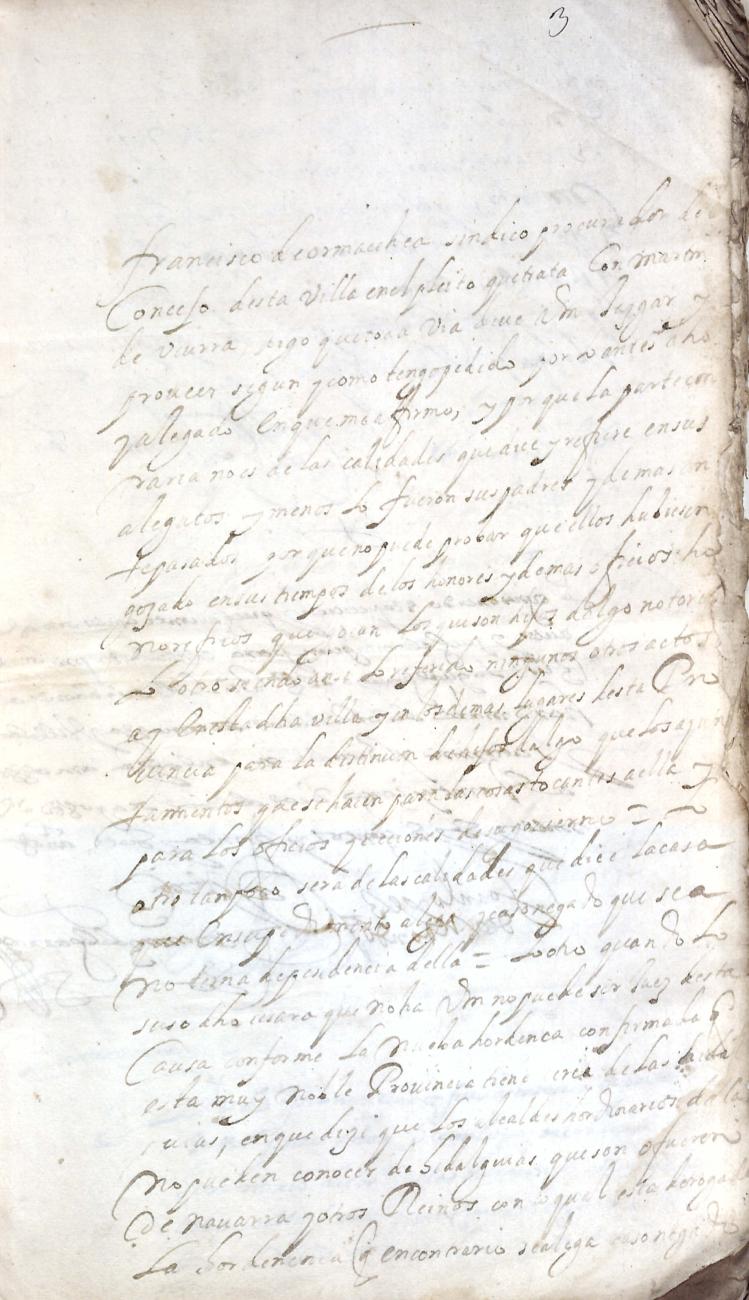 3
Francisco de ormaechea sindico procurador del
Concejo desta Villa en el pleito que trata Con martin
de Vcurra, digo que toda via deue Vm Juzgar y
proueer segun y como tengo pedido por antes dho
y alegado en que me afirmo, y porque la parte con
traria no es de las calidades que dice y refiere en sus
alegatos y menos lo fueron sus padres y demas an
tepasados porque no puede probar que ellos hubiesen
gozado en sus tiempos de los honores y demas oficios ho
norificos que gozan Los que son hijos dalgo notorios
Lo otro siendo Lo referido ningunos otros actos
ay En esta dha villa y en los demas lugares desta Pro
bincia para la distincion de hijos dalgo que Los ajun
tamientos que se hacen para las cosas tocantes a ella y
para Los oficios y elecciones de su gouierno =
otro tampoco sera de las calidades que dice la casa
que En su pedimento alega caso negado que sea
no terna dependencia della = Lo otro quando Lo
suso dho cesara que no ha Vm no puede ser Juez desta
Causa conforme La nueba hordenca confirmada q
esta muy noble Provincia tiene cerca de las hidal
guias, en que dizi que Los alcaldes hordinarios della
no pueden conocer de hidalguias que son o fueren
De nauarra y otros Reinos con lo qual esta derogada
La hordenenca q en contrario se alega caso negado